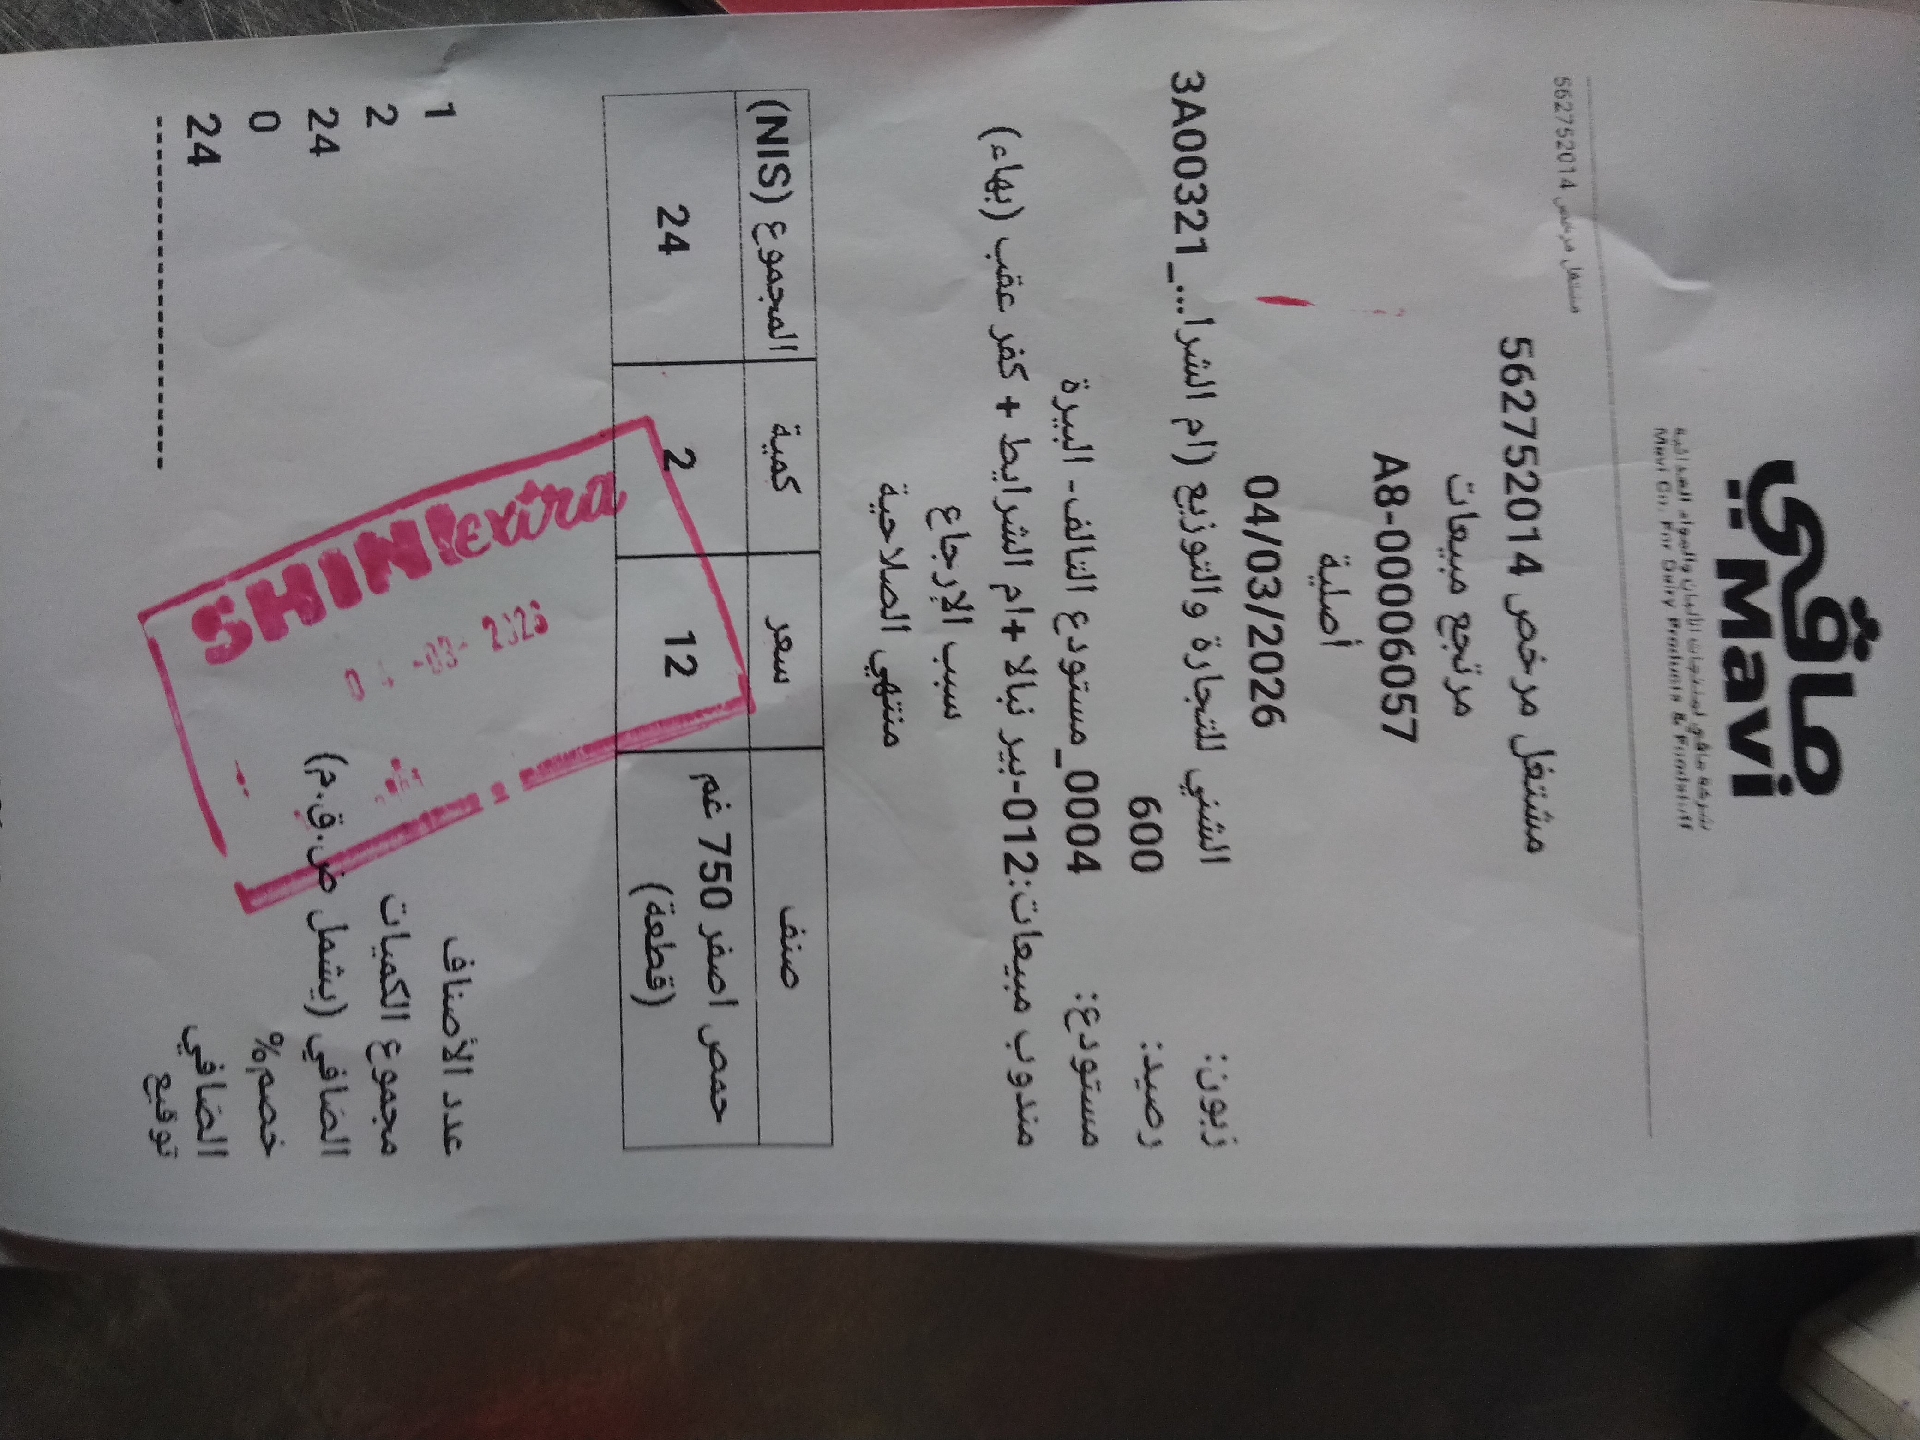 مافي
Mavi
شركة مافي لمنتجات الألبان والمواد الغذائية
Mavi Co. For Dairy Products & Foodstuff
مشتغل مرخص 562752014
مشتغل مرخص 562752014
مرتجع مبيعات
A8-00006057
أصلية
04/03/2026
زبون: الشني للتجارة والتوزيع (ام الشرا..._3A00321
رصيد: 600
مستودع: 0004_مستودع التالف- البيرة
مندوب مبيعات:012-بير نبالا +ام الشرايط + كفر عقب (بهاء)
سبب الإرجاع
منتهي الصلاحية
صنف سعر كمية المجموع (NIS)
حمص اصفر 750 غم (قطعة) 12 2 24
عدد الأصناف 1
مجموع الكميات 2
الصافي (يشمل ض.ق.م) 24
خصم% 0
الصافي 24
توقيع --------------------
SHINI extra
-03- 2026